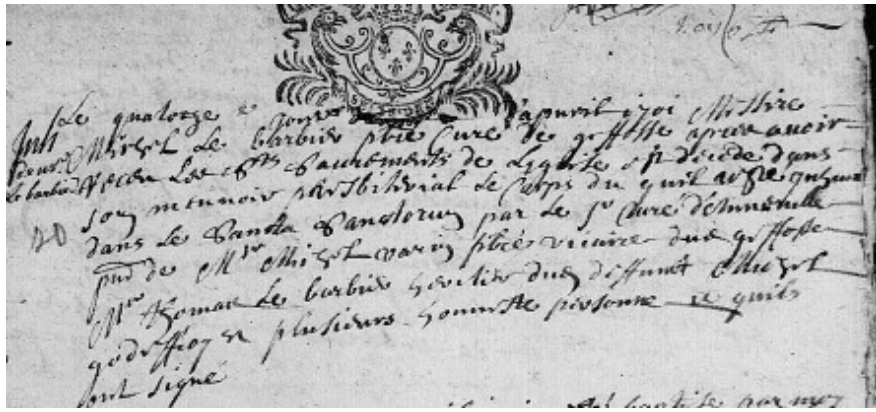 Le quatorze e jour d'apvril 1701 Messire
Michel Le barbier pbre Curé de geffosse apres avoir
Inh
pour
Le barbier
receu Les Sts Sacrements de Leglise est décédé dans
son mennoir presbiterial Le Corps du quil a esté inhumé
dans Le Sancta Sanctorum par Le Sr Curé
pnd de Mre Michel varin pbre vicaire dud geffosse
Mre thomas Le barbier heritier dud deffunct Michel
godeffroy et plusieurs honneste personne ce quils
ont signé
baptisé par moy